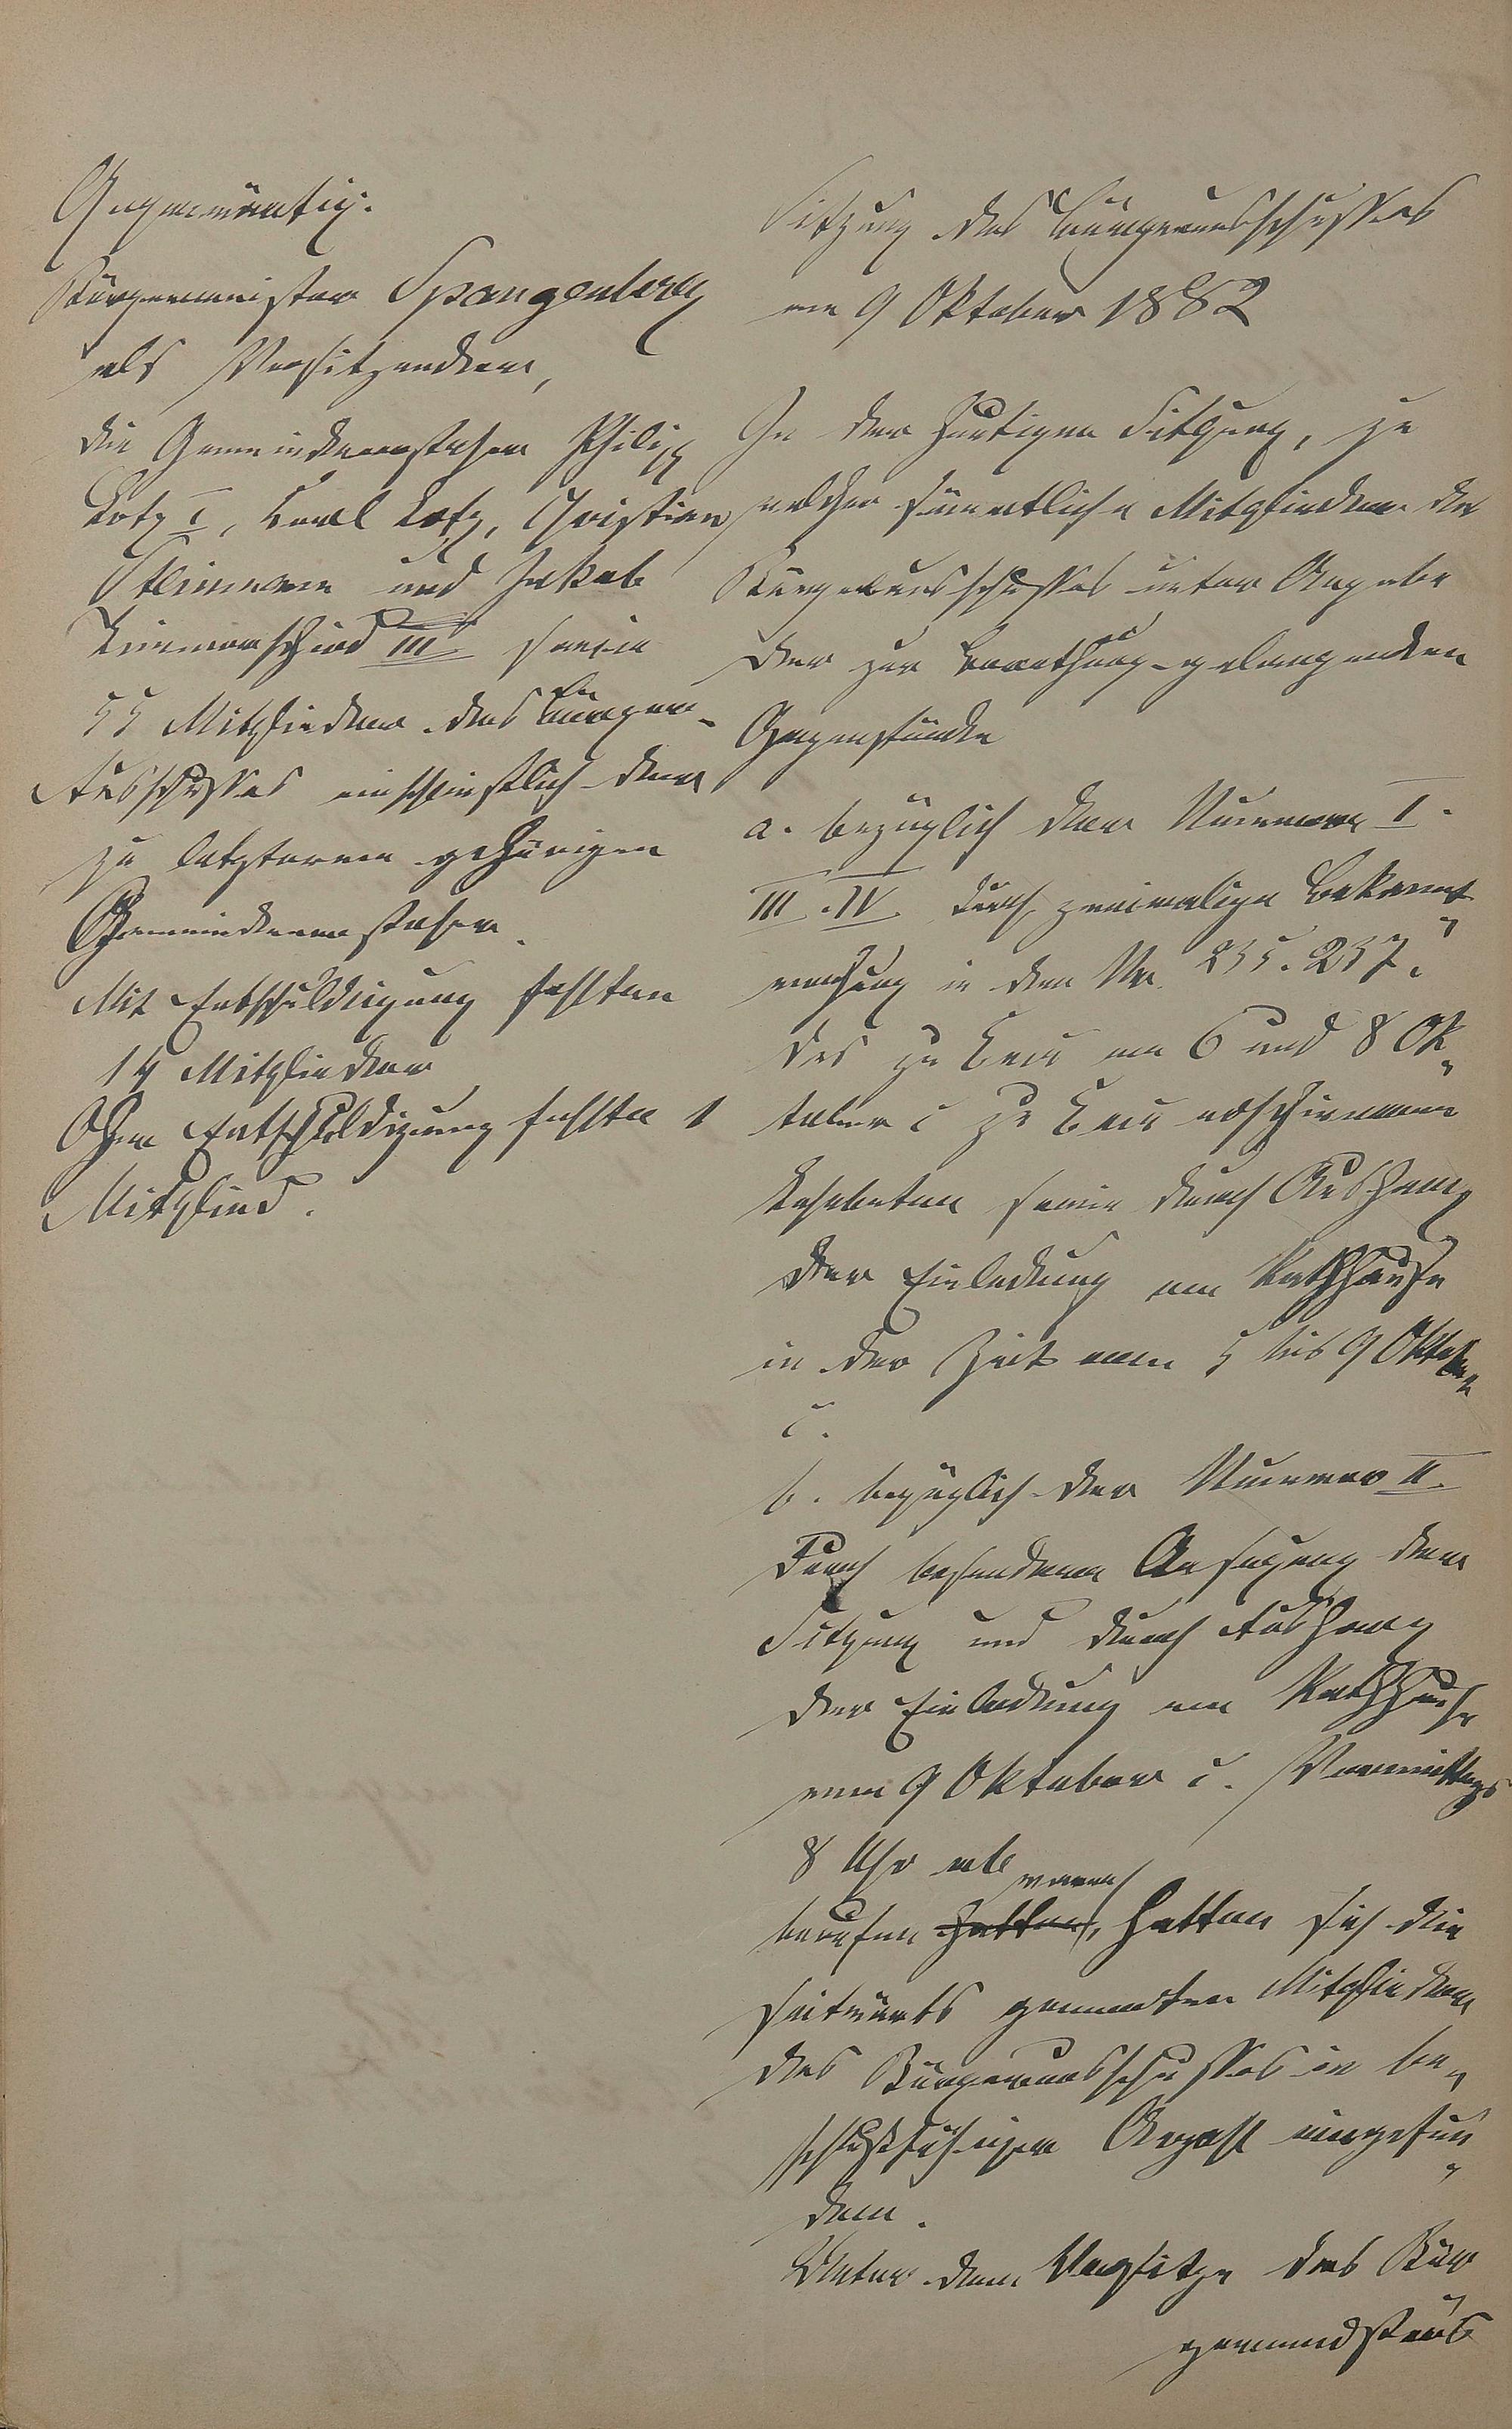 Gegenwärtig:
Bürgermeister Spangenberg
als Vorsitzender,
die Gemeindevorsteher Philipp
Lotz I, Karl Lotz, Christian
und Jakob
III sowie
55 Mitglieder des Bürger-
Ausschusses einschließlich der
zu letzterem gehörigen
Gemeindevorsteher.
Mit Entschuldigung fehlten
14 Mitglieder
Ohne Entschuldigung fehlte 1
Mitglied.
Sitzung des Bürgerausschusses
am 9 Oktober 1882
In der heutigen Sitzung, zu
welcher sämmtliche Mitglieder des
Bürgerausschusses unter Angabe
der zur Berathung gelangenden
Gegenstände
a. bezüglich der Nummern I.
III. IV. durch zweimalige Bekannt„
machung in den Nr. 235. 237.
des zu am 6 und 8 Ok„
tober c zu erschienenen
sowie durch Aushang
der Einladung am Rathhause
in der Zeit vom 5 bis 9 Oktober
c.
b. bezüglich der Nummer II.
Durch besondere Ansagung der
Sitzung und durch Aushang
der Einladung am Rathhause
vom 9 Oktober c. Vormittags
8 Uhr ab
waren
berufen hatten, hatten sich die
seitwärts genannten Mitglieder
des Bürgerausschusses in be„
schlußfähiger Anzahl eingefun„
den.
Unter dem Vorsitze des Bür„
germeisters